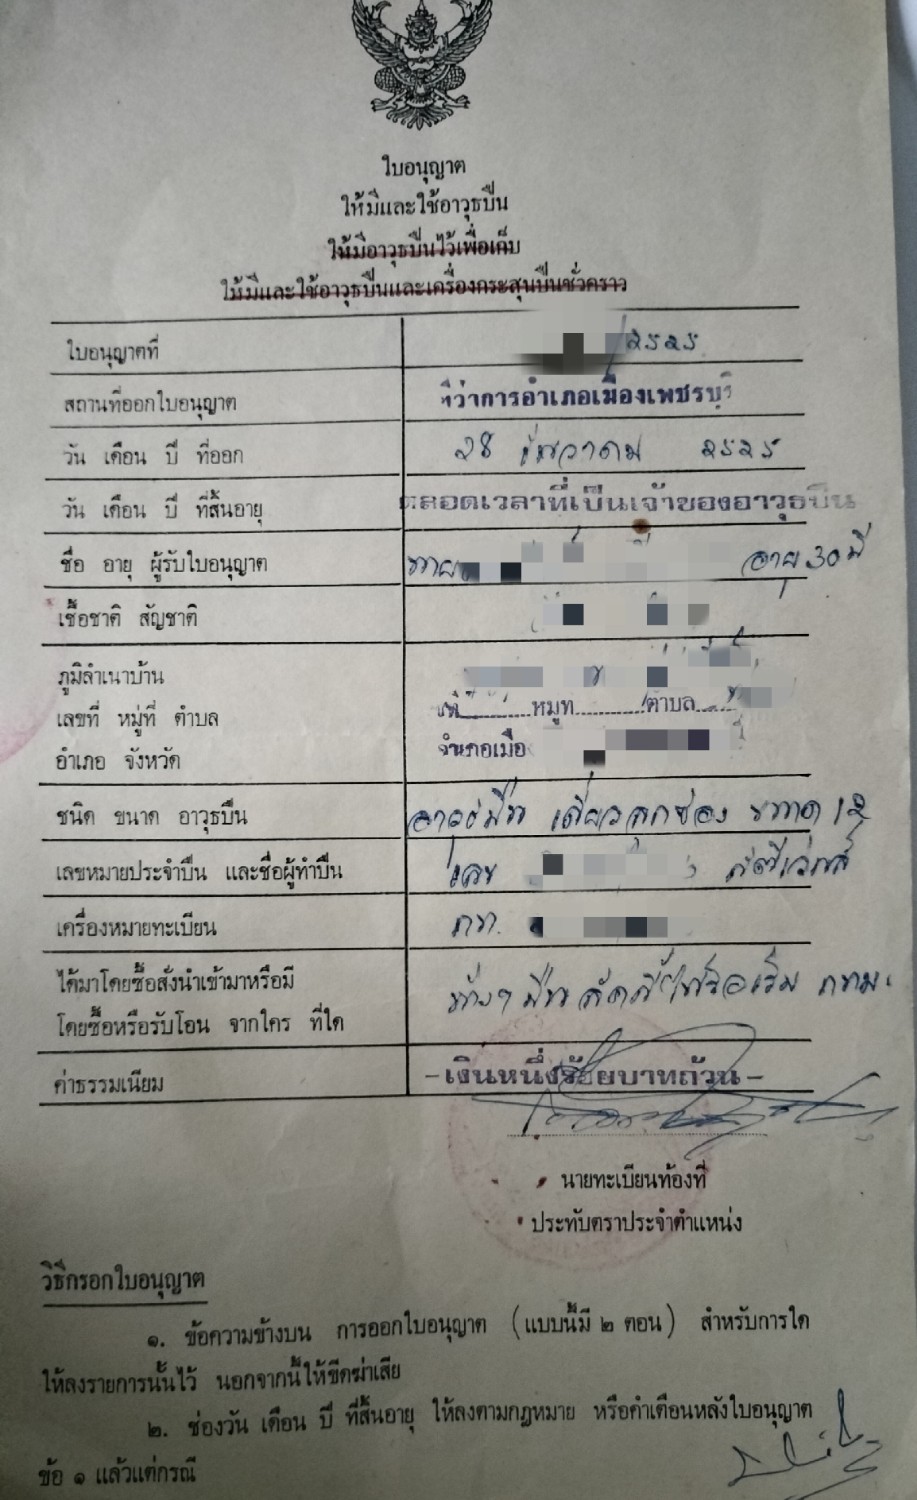 ใบอนุญาต
ให้มีและใช้อาวุธปืน
ให้มีอาวุธปืนไว้เพื่อเก็บ
ให้มีและใช้อาวุธปืนและเครื่องกระสุนปืนชั่วคราว
ใบอนุญาตที่ /๒๕๒๕
สถานที่ออกใบอนุญาต ที่ว่าการอำเภอเมืองเพชรบุรี
วัน เดือน ปี ที่ออก ๒๘ ธันวาคม ๒๕๒๕
วัน เดือน ปี ที่สิ้นอายุ ตลอดเวลาที่เป็นเจ้าของอาวุธปืน
ชื่อ อายุ ผู้รับใบอนุญาต นาย อายุ 30 ปี
เชื้อชาติ สัญชาติ
ภูมิลำเนาบ้าน
เลขที่ หมู่ที่ ตำบล ที่ หมู่ที่ ตำบล
อำเภอ จังหวัด อำเภอเมือ
ชนิด ขนาด อาวุธปืน อาวุธปืน เดี่ยวลูกซอง ขนาด 12
เลขหมายประจำปืน และชื่อผู้ทำปืน เลข
เครื่องหมายทะเบียน กท.
ได้มาโดยซื้อสั่งนำเข้ามาหรือมี
โดยซื้อหรือรับโอน จากใคร ที่ใด กทม.
ค่าธรรมเนียม -เงินหนึ่งร้อยบาทถ้วน-
นายทะเบียนท้องที่
ประทับตราประจำตำแหน่ง
วิธีกรอกใบอนุญาต
๑. ข้อความข้างบน การออกใบอนุญาต (แบบนี้มี ๒ ตอน) สำหรับการใด
ให้ลงรายการนั้นไว้ นอกจากนี้ให้ขีดฆ่าเสีย
๒. ช่องวัน เดือน ปี ที่สิ้นอายุ ให้ลงตามกฎหมาย หรือคำเตือนหลังใบอนุญาต
ข้อ ๑ แล้วแต่กรณี